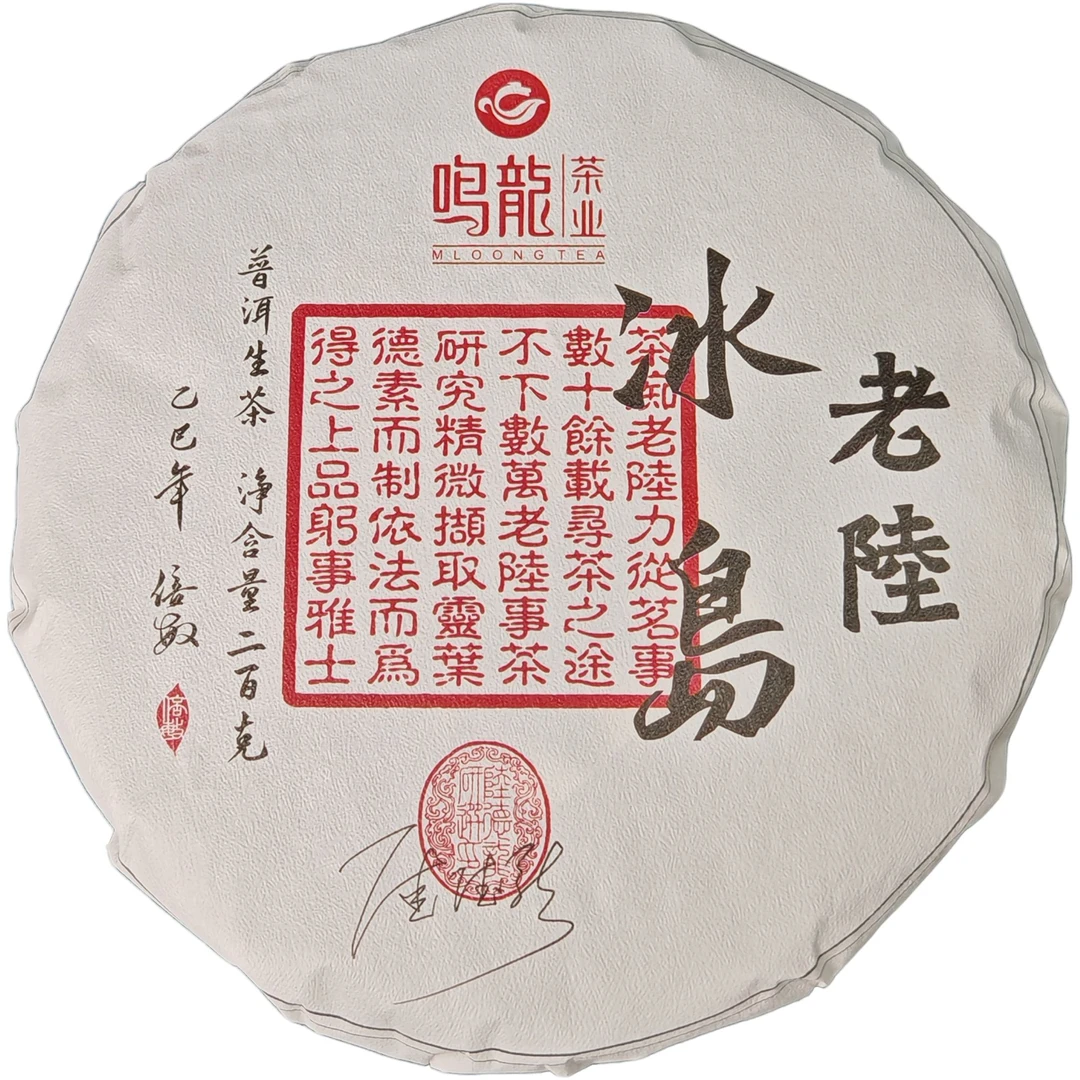 鸣龍
茶业
MLOONGTEA
老陸
冰島
茶痴老陸力從茗事
數十餘載尋茶之途
不下數萬老陸事茶
研究精微擷取靈葉
德素而制依法而爲
得之上品躬事雅士
普洱生茶 净含量二百克
乙巳年